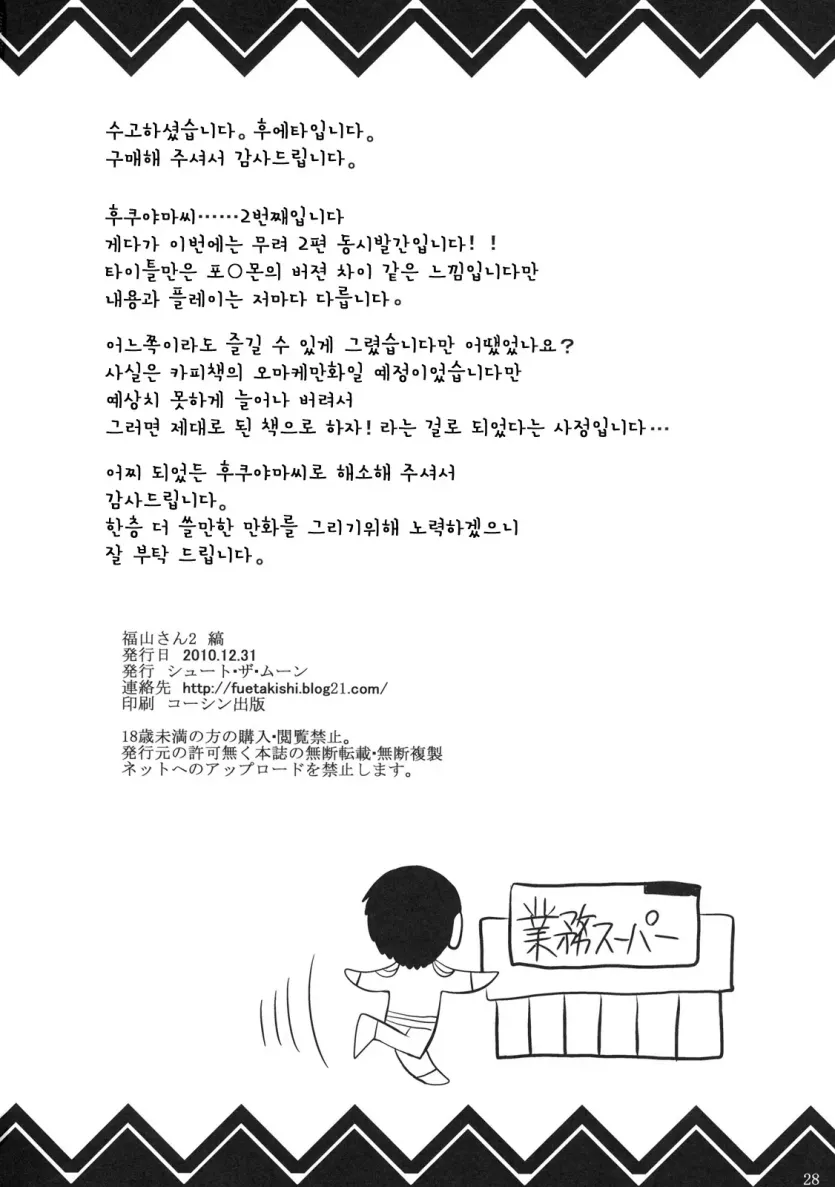 수고하셨습니다。후에타입니다。
구매해 주셔서 감사드립니다。
후쿠야마씨……2번째입니다
게다가 이번에는 무려 2편 동시발간입니다！！
타이틀만은 포○몬의 버젼 차이 같은 느낌입니다만
내용과 플레이는 저마다 다릅니다。
어느쪽이라도 즐길 수 있게 그렸습니다만 어땠었나요？
사실은 카피책의 오마케만화일 예정이었습니다만
예상치 못하게 늘어나 버려서
그러면 제대로 된 책으로 하자！라는 걸로 되었다는 사정입니다…
어찌 되었든 후쿠야마씨로 해소해 주셔서
감사드립니다。
한층 더 쓸만한 만화를 그리기위해 노력하겠으니
잘 부탁 드립니다。
福山さん2 縞
発行日 2010.12.31
発行 シュート・ザ・ムーン
連絡先 http://fuetakishi.blog21.com/
印刷 コーシン出版
18歳未満の方の購入・閲覧禁止。
発行元の許可無く本誌の無断転載・無断複製
ネットへのアップロードを禁止します。
業務スーパー
28